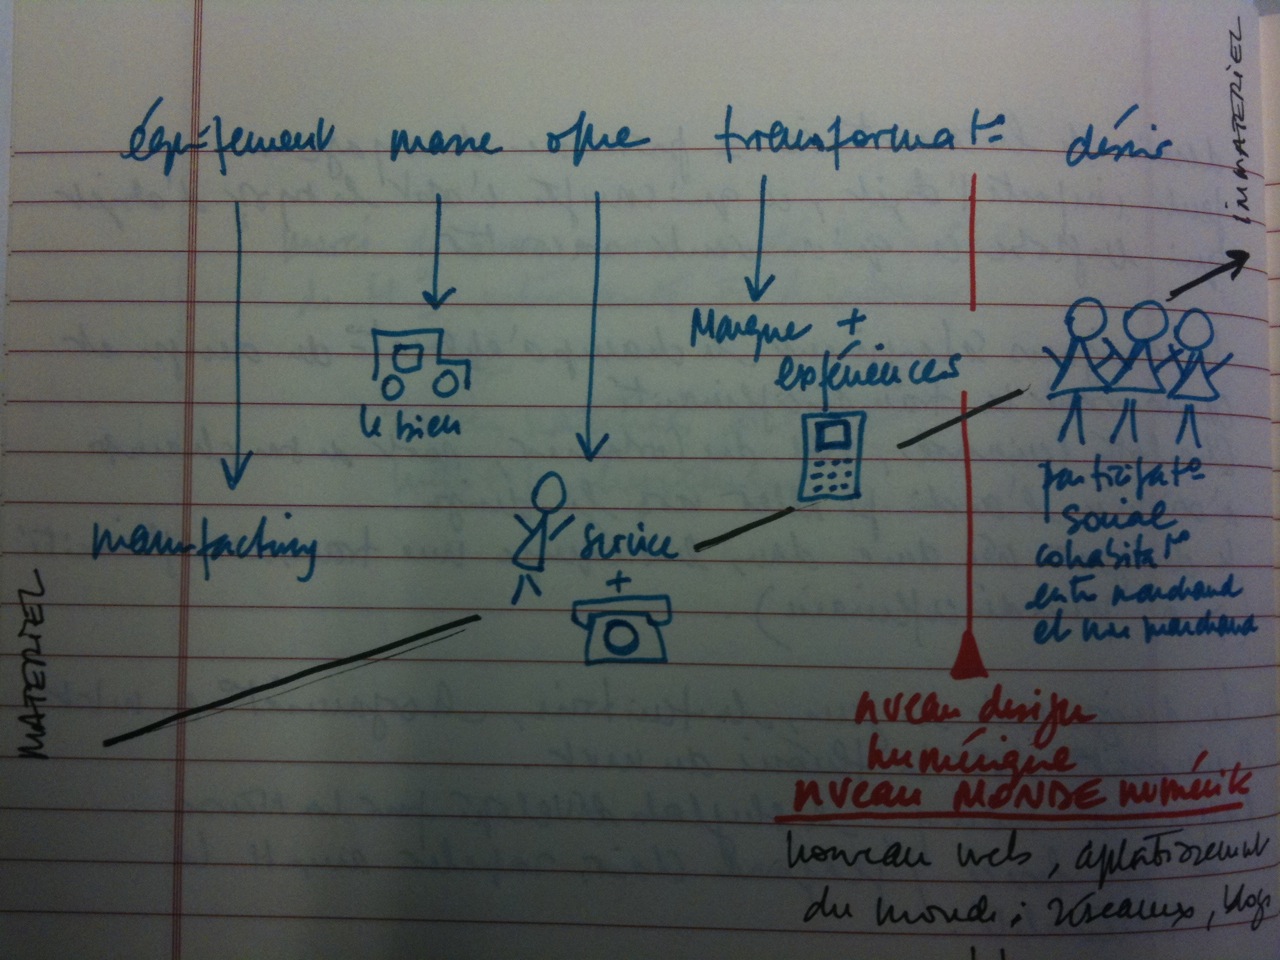 IMMATERIEL
équipement masse offre transformat° désir
Marque +
expériences
le bien
manufacting
service
+
participat°
social
cohabitat°
entre marchand
et non marchand
MATERIEL
nveau design
numérique
nveau MONDE numérik
nouveau web, aplatissement
du monde; réseaux, blogs